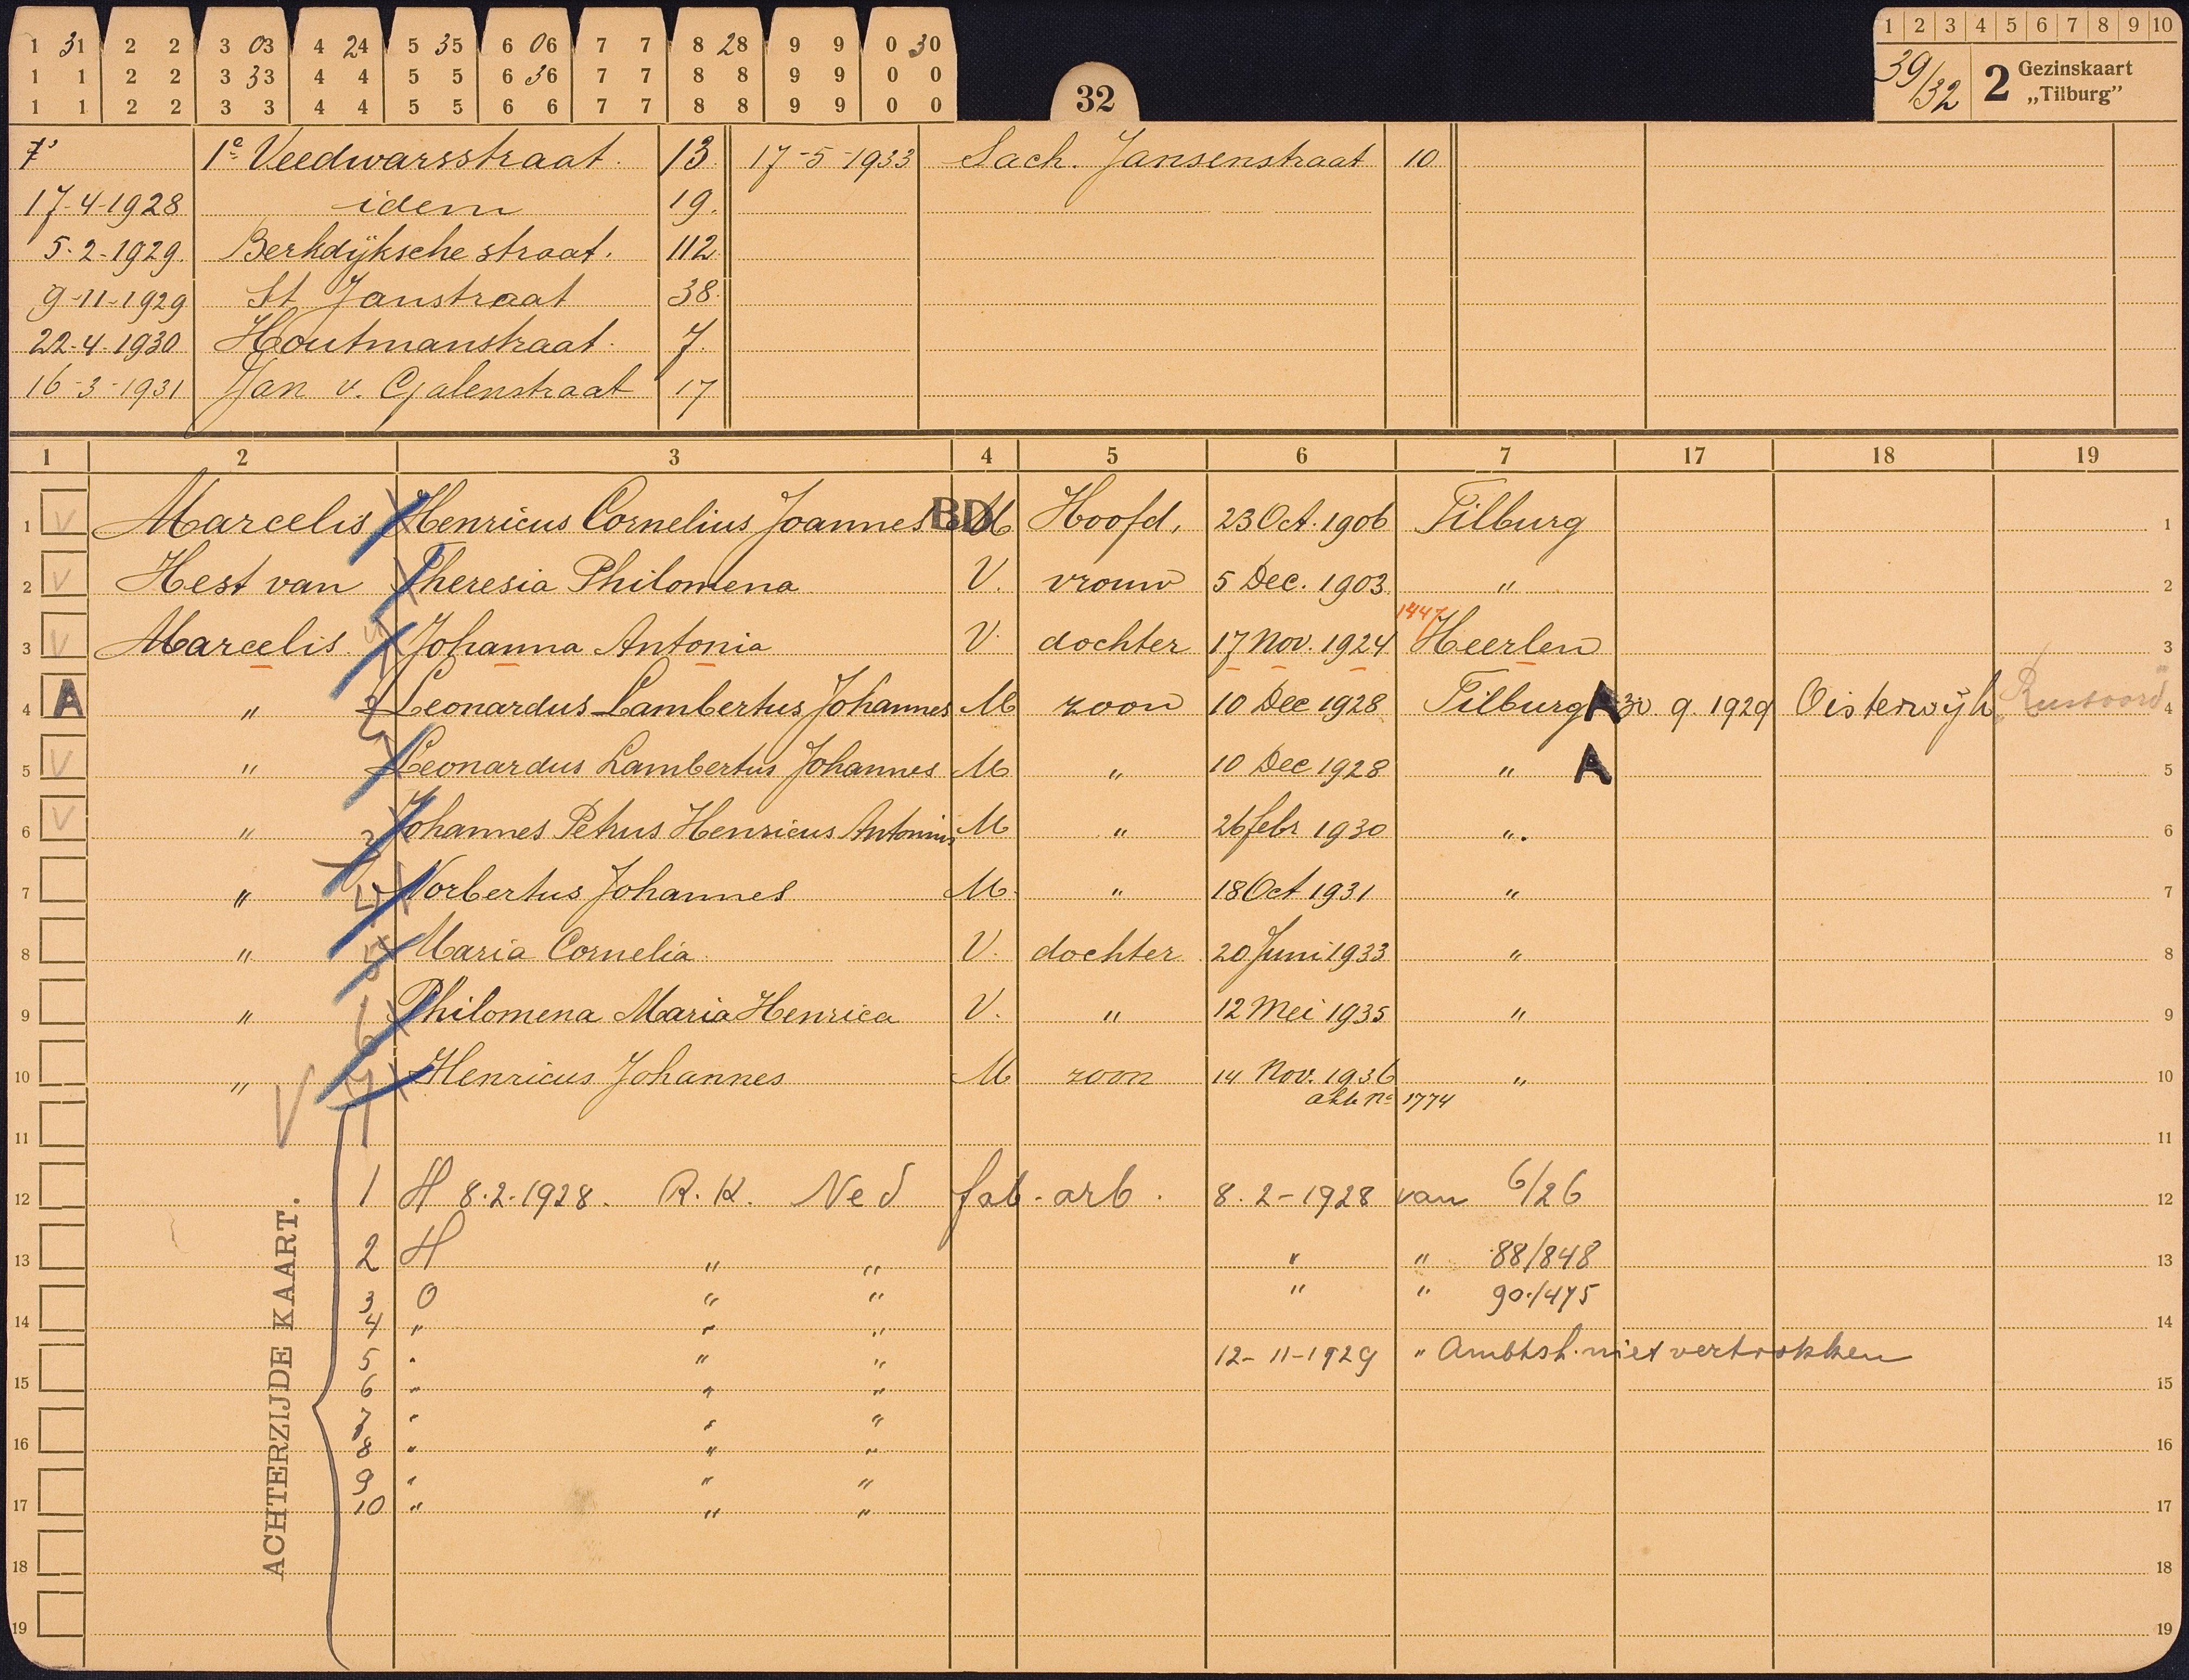 1 31 2 2 3 03 4 24 5 35 6 06 7 7 8 28 9 9 0 30
1 1 2 2 3 33 4 4 5 5 6 36 7 7 8 8 9 9 0 0
1 1 2 2 3 3 4 4 5 5 6 6 7 7 8 8 9 9 0 0
32
1 2 3 4 5 6 7 8 9 10
39/32 2 Gezinskaart „Tilburg”
1e Veedwarsstraat. 13 17-5-1933 Sach. Jansenstraat 10
17-4-1928 idem 19.
5-2-1929 Berkdijksche straat. 112
9-11-1929 St Janstraat 38
22-4-1930 Houtmanstraat. 7.
16-3-1931 Jan v. Galenstraat 17
1 2 3 4 5 6 7 17 18 19
1 V Marcelis Henricus Cornelius Joannes BD M Hoofd, 23 Oct. 1906 Tilburg 1
2 V Hest van Theresia Philomena V. vrouw 5 Dec. 1903 " 2
1447
3 V Marcelis Johanna Antonia V. dochter 17 Nov. 1924 Heerlen 3
4 A " 2 Leonardus Lambertus Johannes M zoon 10 Dec 1928 Tilburg A 30.9.1929 Oisterwijk 4
5 V " Leonardus Lambertus Johannes M " 10 Dec 1928 " A 5
6 V " 3 Johannes Petrus Henricus Antonius M " 26 febr 1930 " 6
7 " 4 Norbertus Johannes M. " 18 Oct 1931 " 7
8 " 5 Maria Cornelia V. dochter 20 Juni 1933 " 8
9 " 6 Philomena Maria Henrica V. " 12 Mei 1935 " 9
10 " V 7 Henricus Johannes M zoon 14 Nov. 1936 " 10
akte no 1774
11 11
12 1 H 8.2.1928. R.K. Ned fab-arb. 8.2-1928 van 6/26 12
13 2 H " " " " 88/848 13
3 O " " " " 90/475
14 4 " " " 14
5 " " " 12-11-1929 " Ambtsh. niet vertrokken
15 6 " " " 15
7 " " "
16 8 " " " 16
9 " " "
17 10 " " " 17
18 18
19 19
ACHTERZIJDE KAART.